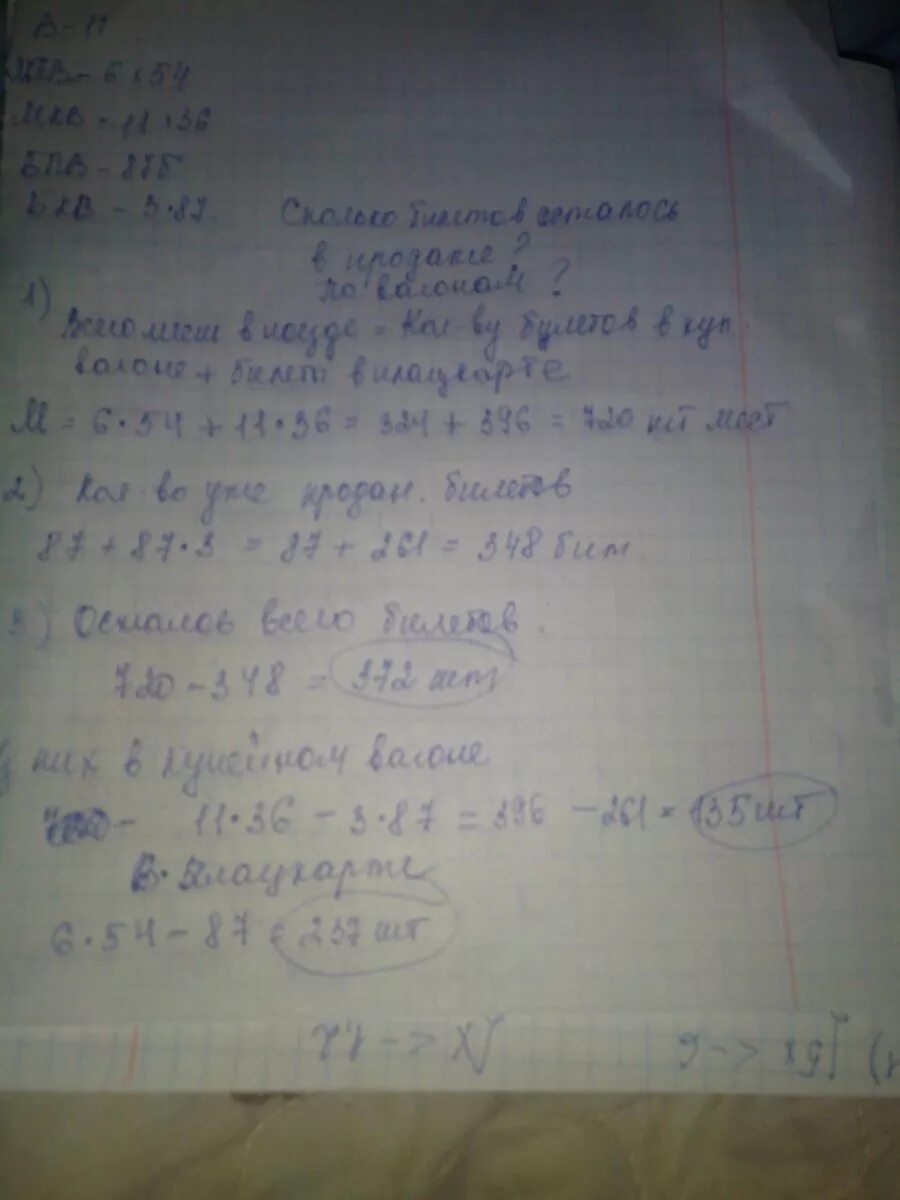 В - 17
МПВ - 6 × 54
МКВ = 11 × 36
БПВ - 87б
БКВ - 3·87
Сколько билетов осталось
в продаже?
по вагонам?
1)
Всего мест в поезде = Кол-ву булетов в куп.
вагоне + билето в плацкарте
М = 6·54 + 11·36 = 324 + 396 = 720 шт мест
2) Кол-во уже продан. билетов
87 + 87·3 = 87 + 261 = 348 бил.
3) Осталось всего билетов.
720 - 348 = 372 шт
них в купейном вагоне
- 11·36 - 3·87 = 396 - 261 = 135 шт
В. Плацкарте
6·54 - 87 = 237 шт